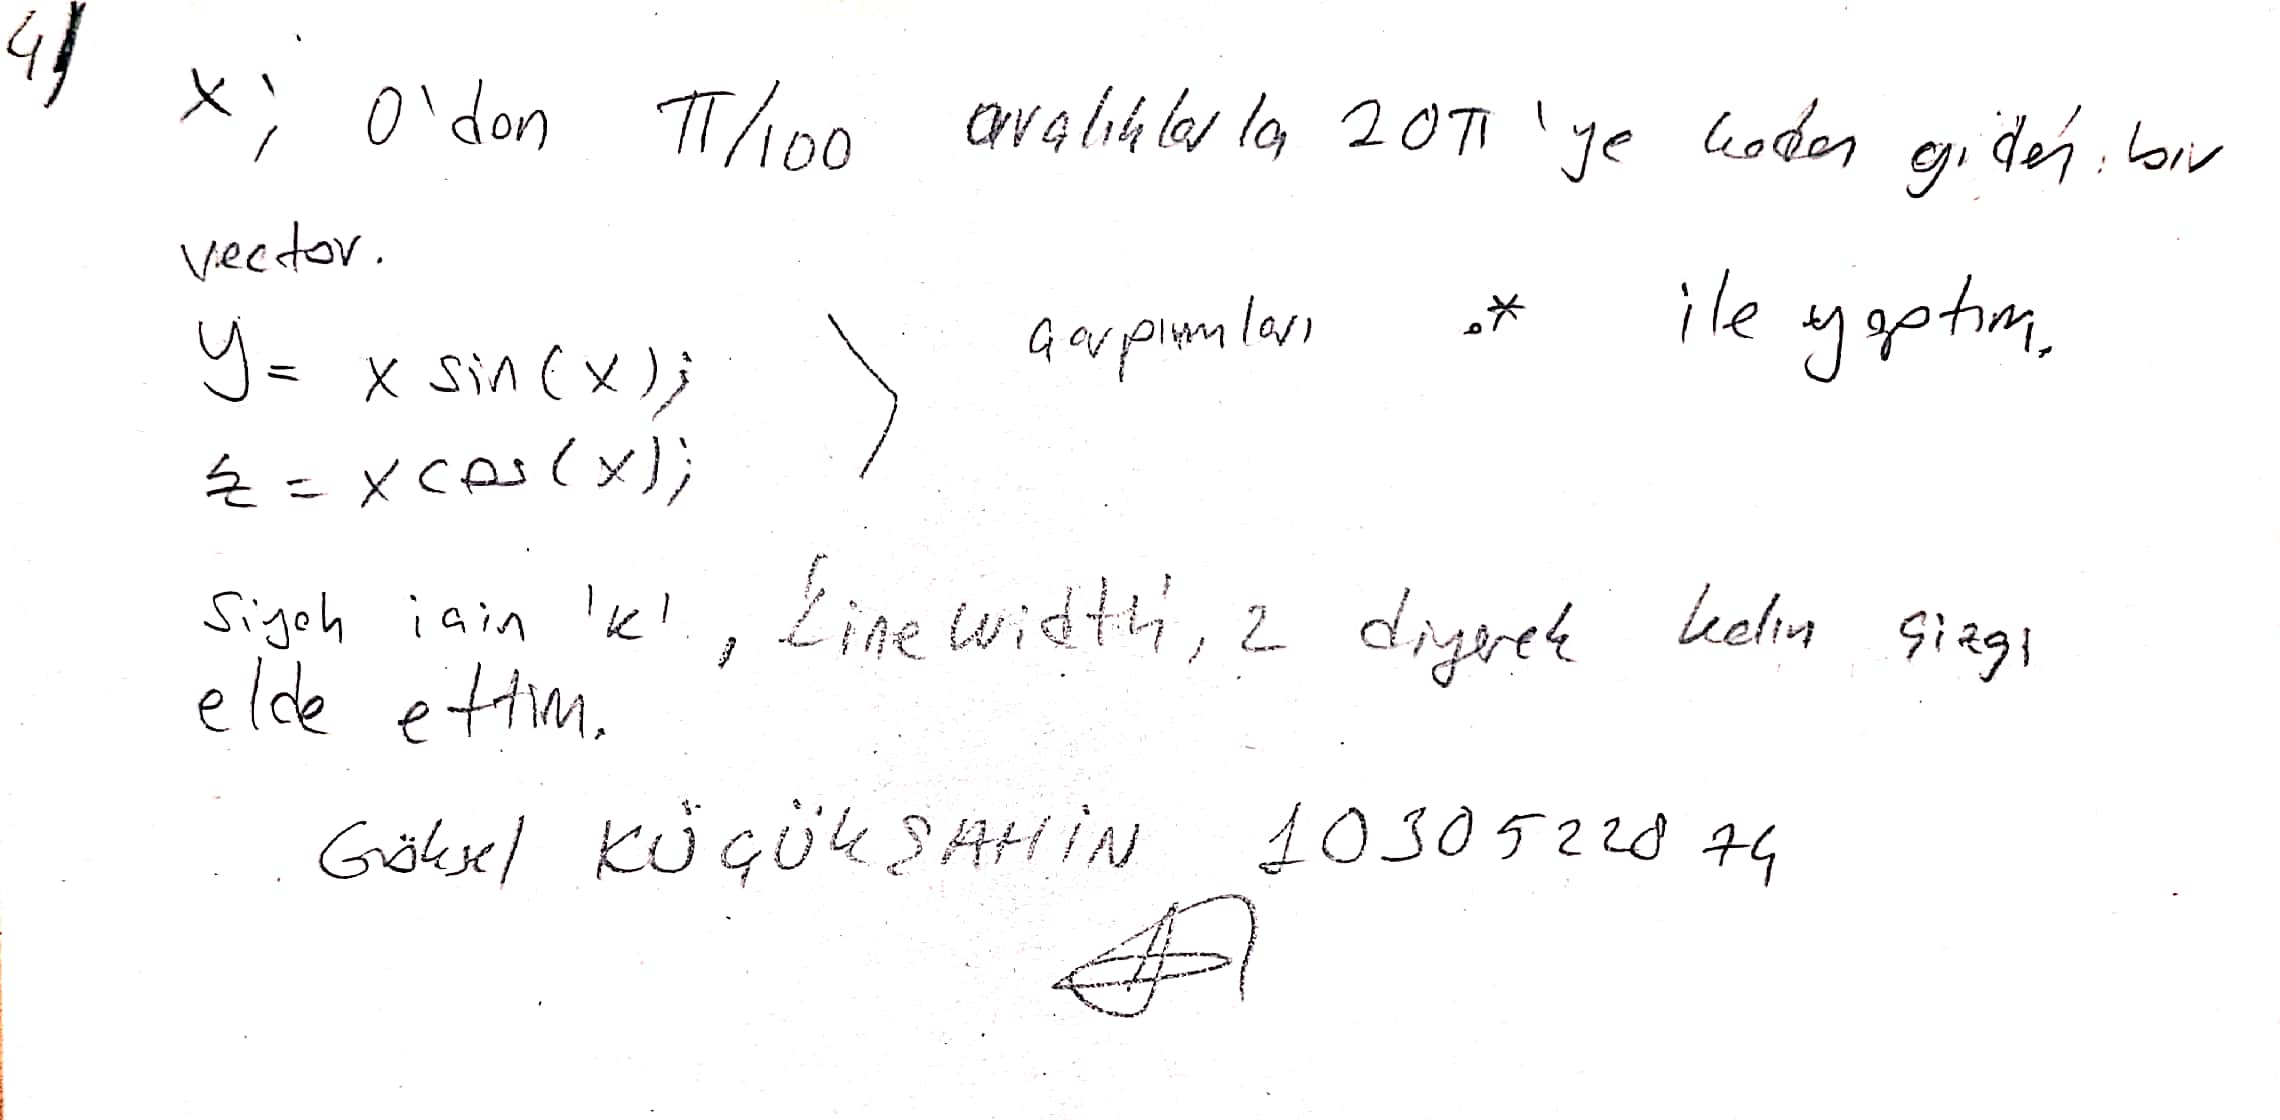 4)
x; 0'dan π/100 aralıklarla 20π'ye kadar giden bir
vector.
y = x sin(x);
z = x cos(x);
çarpımları .* ile yaptım.
Siyah için 'k', 'Linewidth', 2 diyerek kalın çizgi
elde ettim.
Göksel KÜÇÜKŞAHİN 1030522874